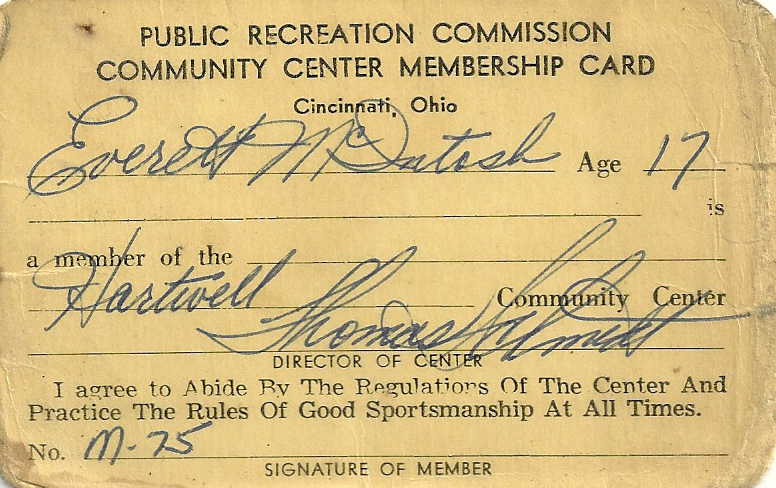 PUBLIC RECREATION COMMISSION
COMMUNITY CENTER MEMBERSHIP CARD
Cincinnati, Ohio
Everett McIntosh Age 17
is
a member of the
Hartwell Community Center
Thomas Schmidt
DIRECTOR OF CENTER
I agree to Abide By The Regulations Of The Center And
Practice The Rules Of Good Sportsmanship At All Times.
No. M-75
SIGNATURE OF MEMBER